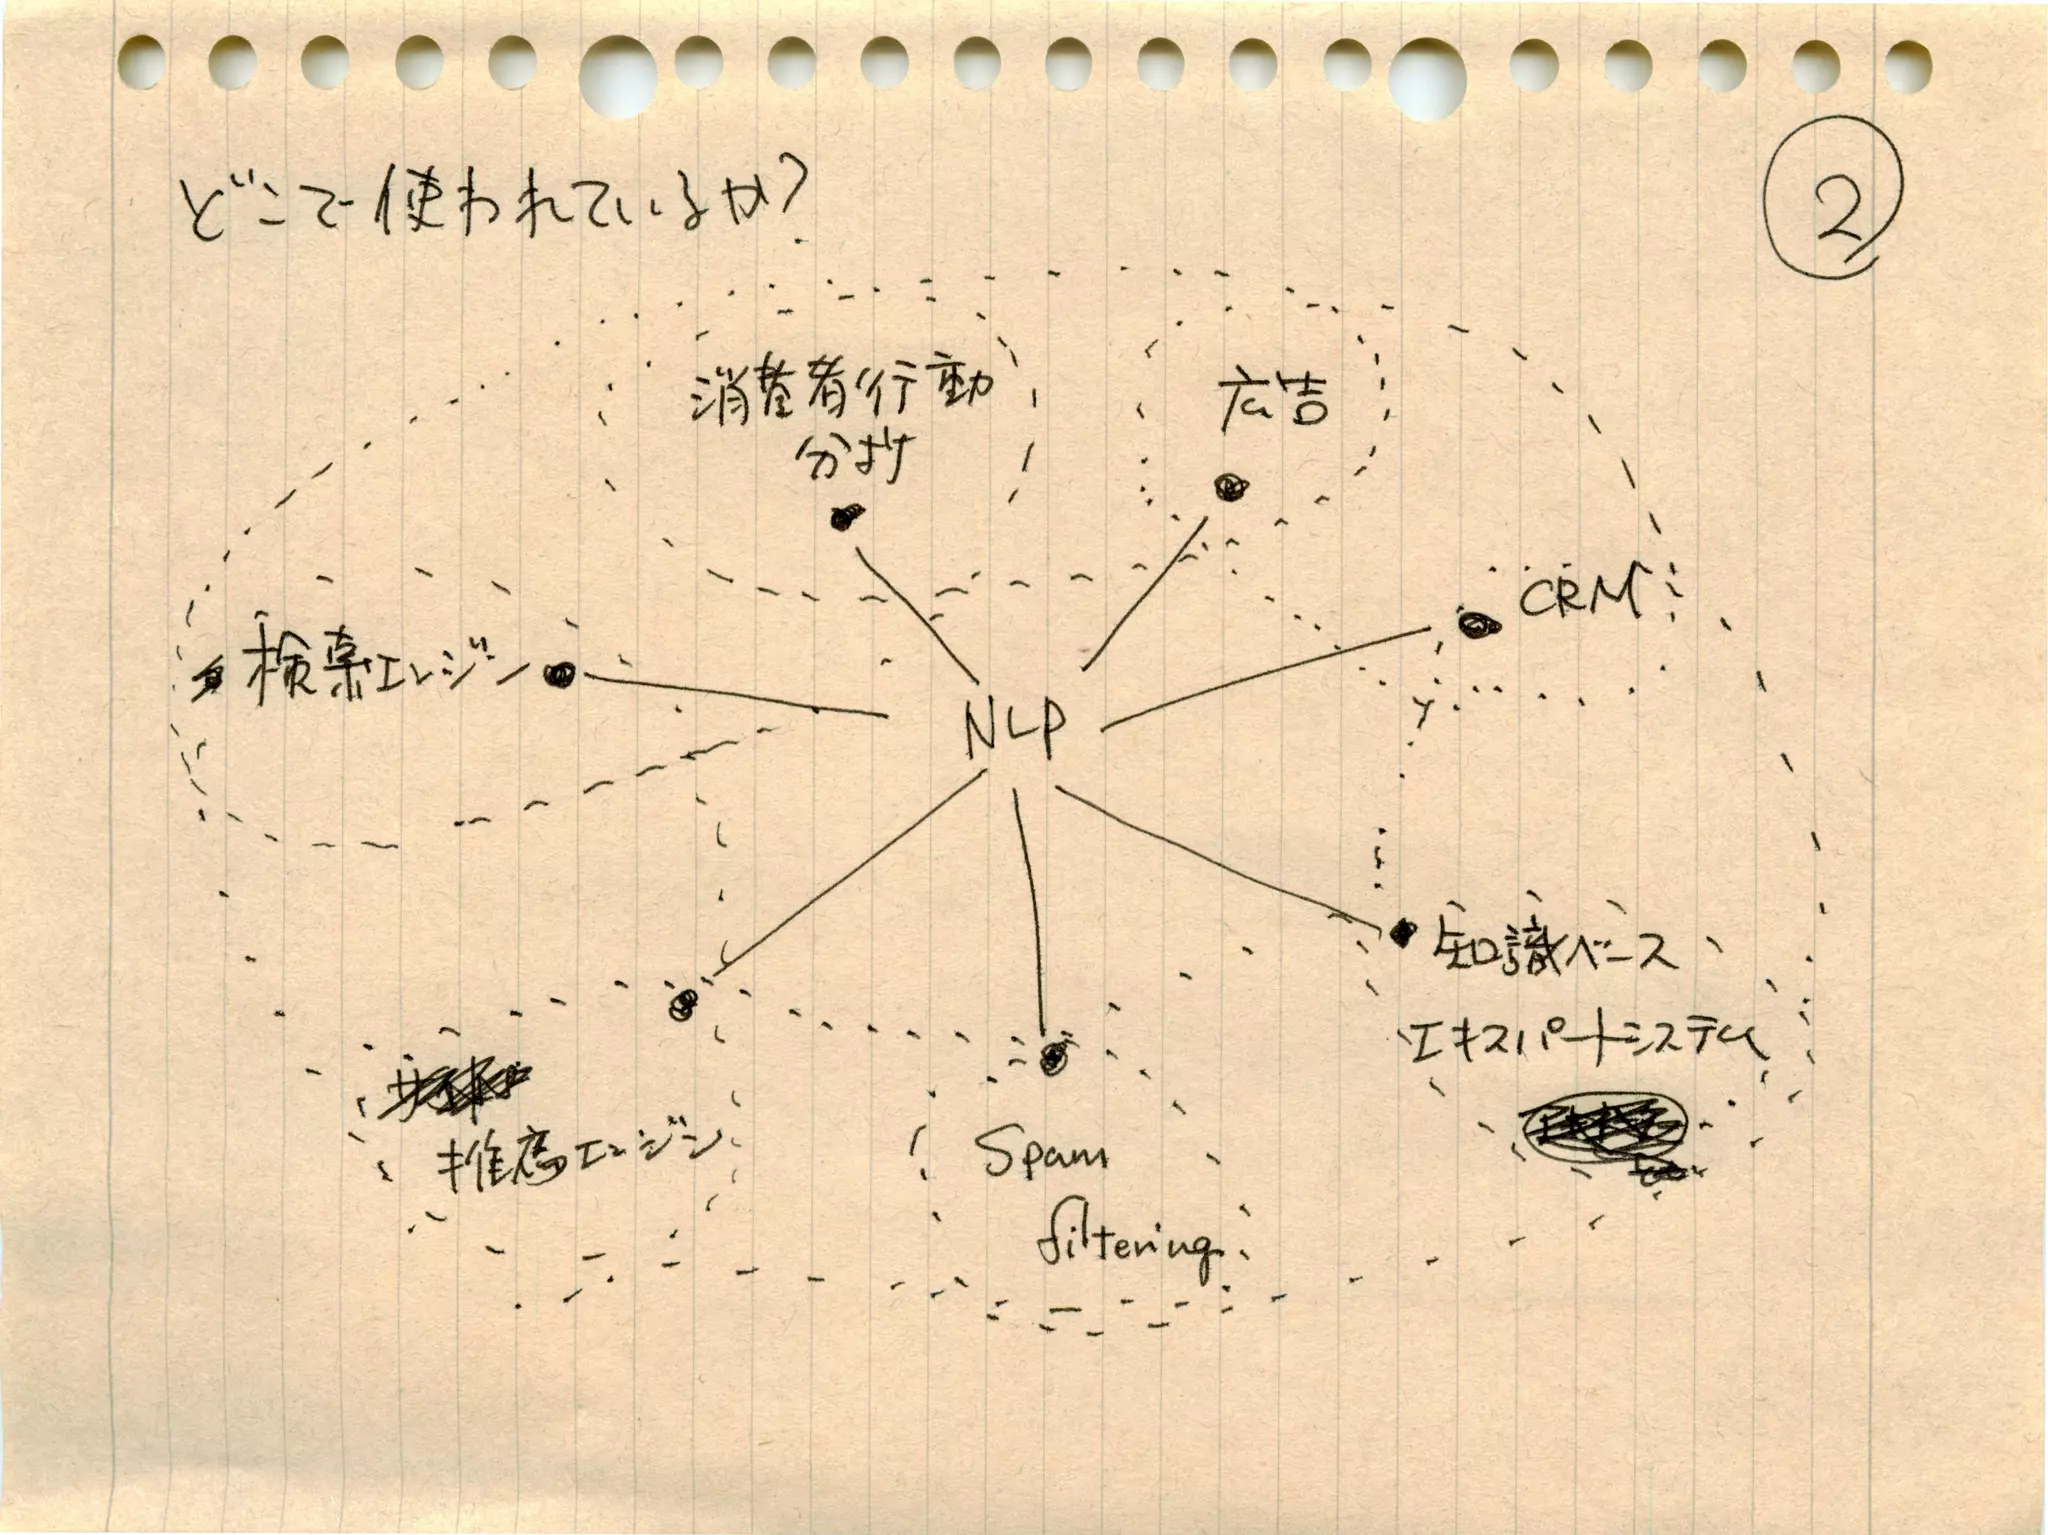 どこで使われているか?
2
消費者行動
分析
広告
CRM
検索エンジン
NLP
知識ベース
エキスパートシステム
推薦エンジン
Spam
filtering